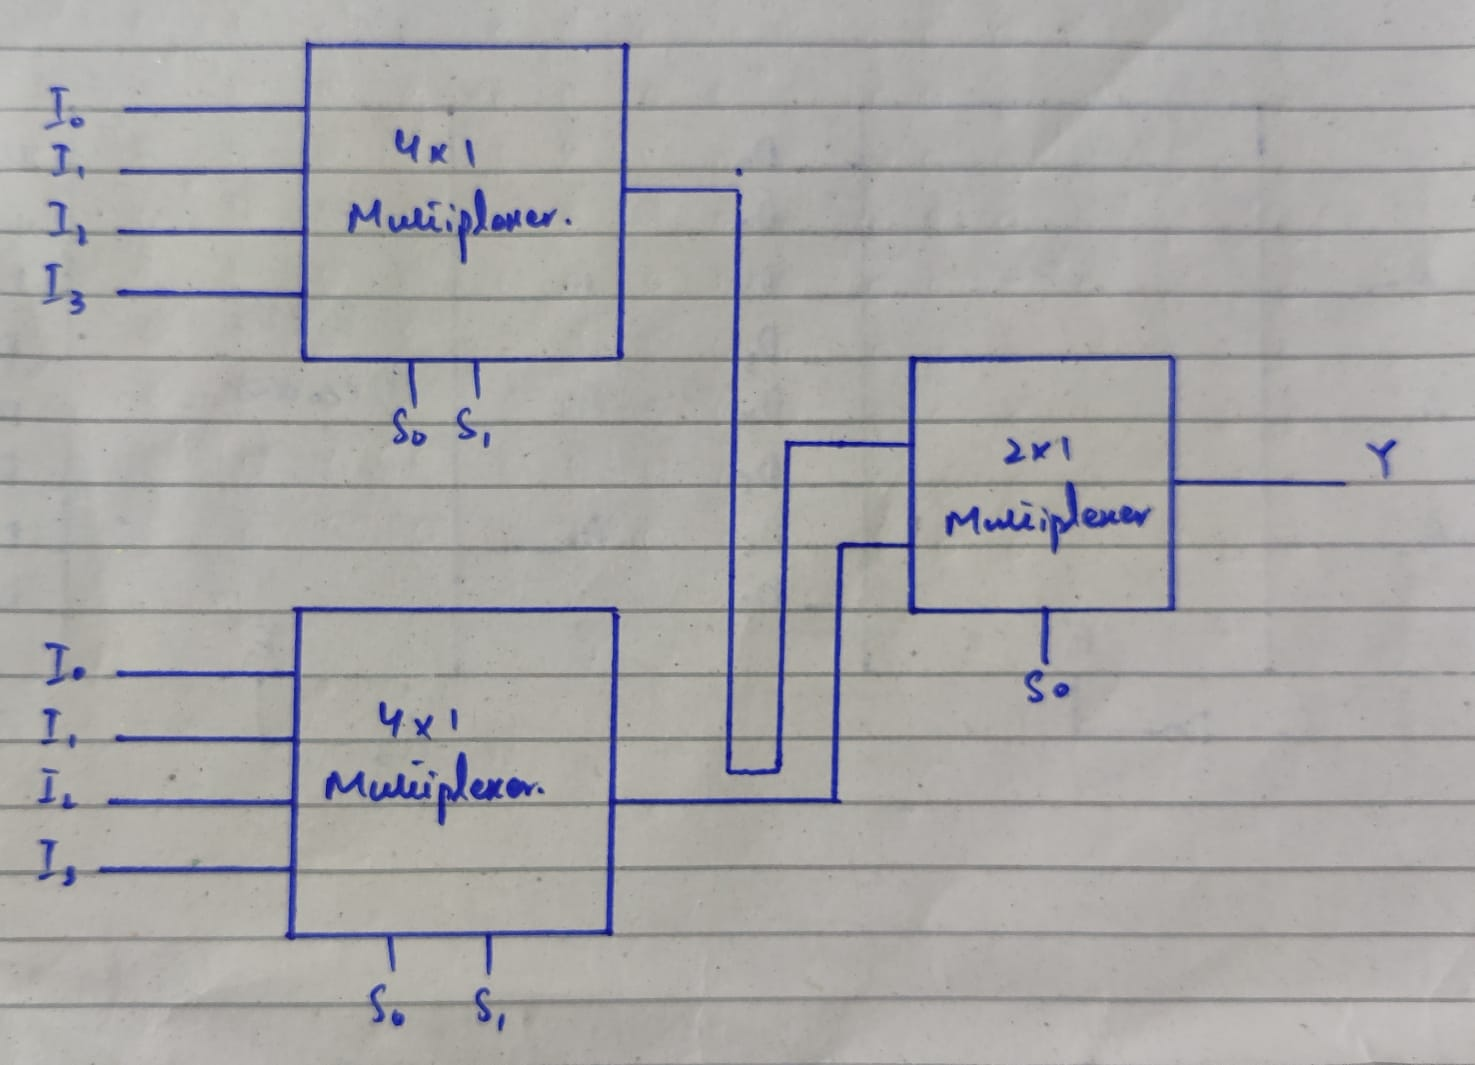 I₀
I₁
I₂
I₃
4x1
Multiplexer.
S₀ S₁
2x1
Multiplexer
Y
S₀
I₀
I₁
I₂
I₃
4x1
Multiplexer.
S₀ S₁